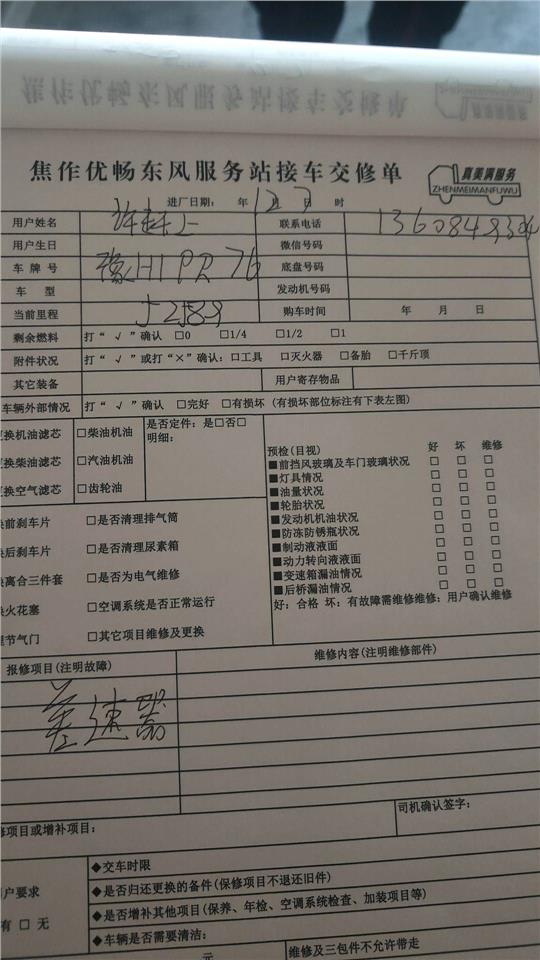 焦作优畅东风服务站接车交修单
真美满服务
ZHENMEIMANFUWU
进厂日期: 年 12月 7日 时
用户姓名 联系电话
用户生日 微信号码
车牌号 豫H1PR76 底盘号码
车 型 发动机号码
当前里程 52589 购车时间 年 月 日
剩余燃料 打“√”确认 □0 □1/4 □1/2 □1
附件状况 打“√”或打“×”确认: □工具 □灭火器 □备胎 □千斤顶
其它装备 用户寄存物品
车辆外部情况 打“√”确认 □完好 □有损坏 (有损坏部位标注有下表左图)
更换机油滤芯 □柴油机油 是否定件: 是□否□
明细:
更换柴油滤芯 □汽油机油
更换空气滤芯 □齿轮油
预检(目视) 好 坏 维修
■前挡风玻璃及车门玻璃状况 □ □ □
■灯具情况 □ □ □
■油量状况 □ □ □
■轮胎状况 □ □ □
■发动机机油状况 □ □ □
■防冻防锈瓶状况 □ □ □
■制动液液面 □ □ □
■动力转向液液面 □ □ □
■变速箱漏油情况 □ □ □
■后桥漏油情况 □ □ □
好: 合格 坏: 有故障需维修维修: 用户确认维修
换前刹车片 □是否清理排气筒
换后刹车片 □是否清理尿素箱
换离合三件套 □是否为电气维修
换火花塞 □空调系统是否正常运行
理节气门 □其它项目维修及更换
报修项目(注明故障) 维修内容(注明维修部件)
差速器
修项目或增补项目: 司机确认签字:
户要求
有 □ 无
◆交车时限
◆是否归还更换的备件(保修项目不退还旧件)
◆是否增补其他项目(保养、年检、空调系统检查、加装项目等)
◆车辆是否需要清洁:
元 维修及三包件不允许带走